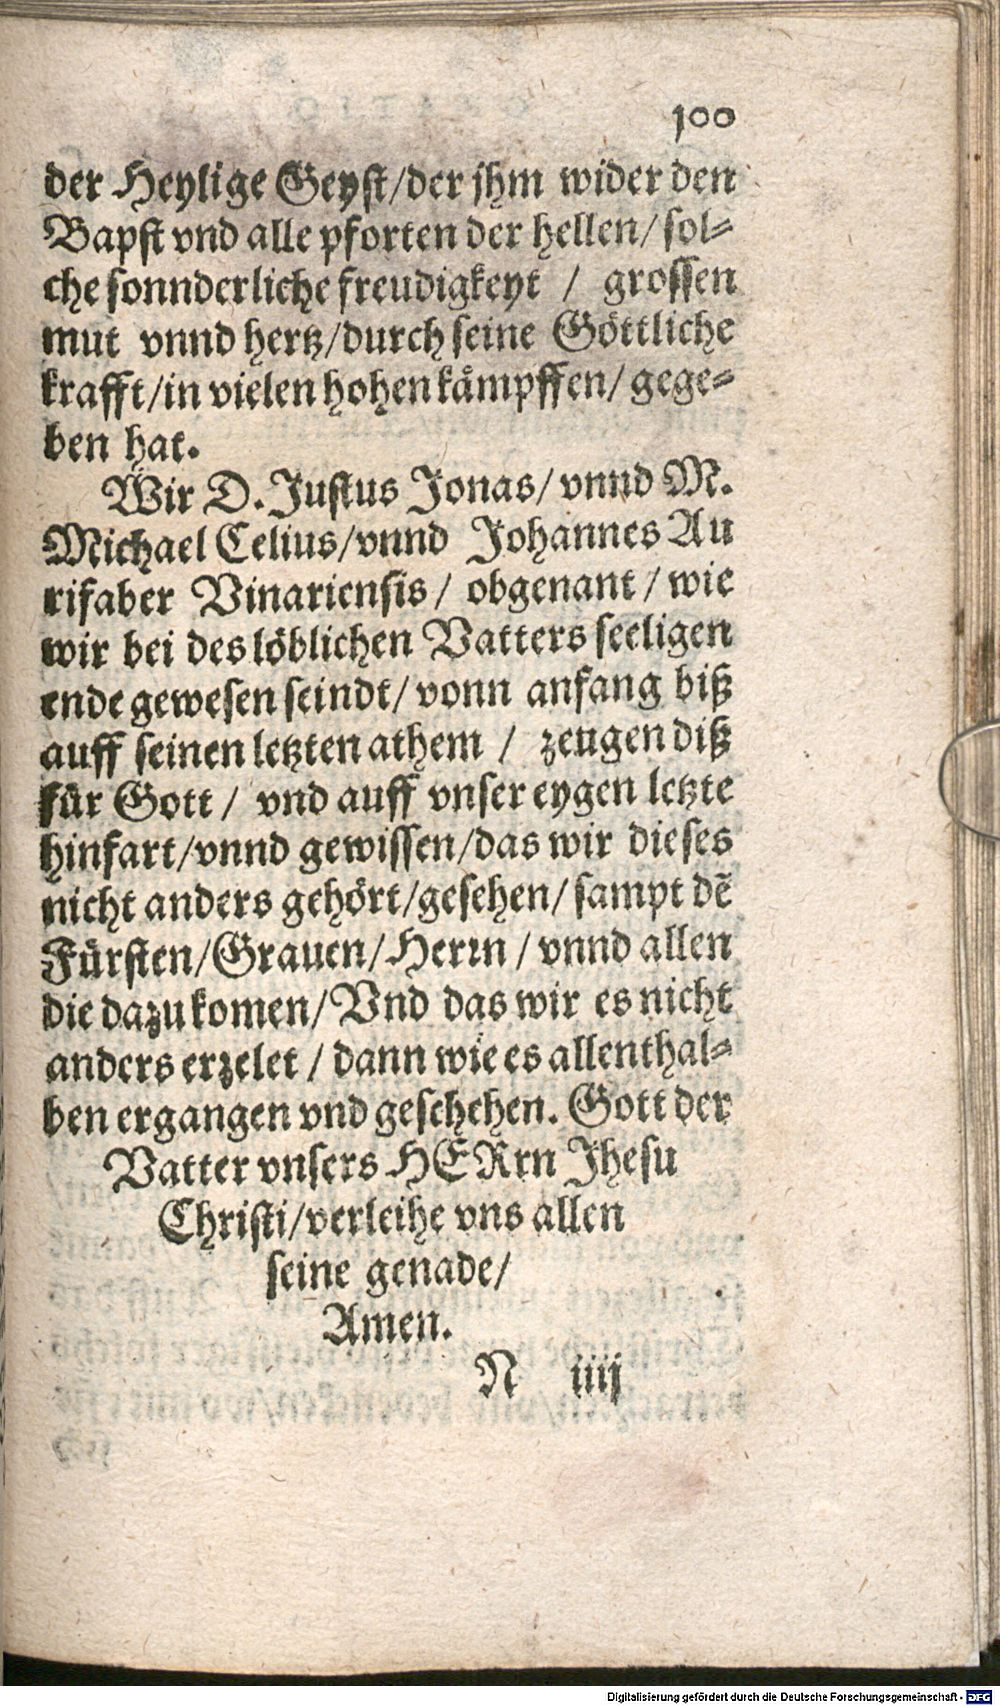 100
der Heylige Geyst/der jhm wider den
Bapst vnd alle pforten der hellen/ sol⸗
che sonnderliche freudigkeyt / grossen
mut vnnd hertz/durch seine Göttliche
krafft/in vielen hohen kämpffen/ gege⸗
ben hat.
Wir D. Justus Jonas/ vnnd M.
Michael Celius/vnnd Johannes Au
rifaber Vinariensis/ obgenant / wie
wir bei des löblichen Vatters seeligen
ende gewesen seindt/ vonn anfang biß
auff seinen letzten athem / zeugen diß
für Gott/ vnd auff vnser eygen letzte
hinfart/vnnd gewissen/das wir dieses
nicht anders gehört/gesehen/ sampt dẽ
Fürsten/Grauen/Herrn / vnnd allen
die dazu komen/Vnd das wir es nicht
anders erzelet / dann wie es allenthal⸗
ben ergangen vnd geschehen. Gott der
Vatter vnsers HERrn Jhesu
Christi/verleihe vns allen
seine genade/
Amen.
N iiij
Digitalisierung gefördert durch die Deutsche Forschungsgemeinschaft - DFG